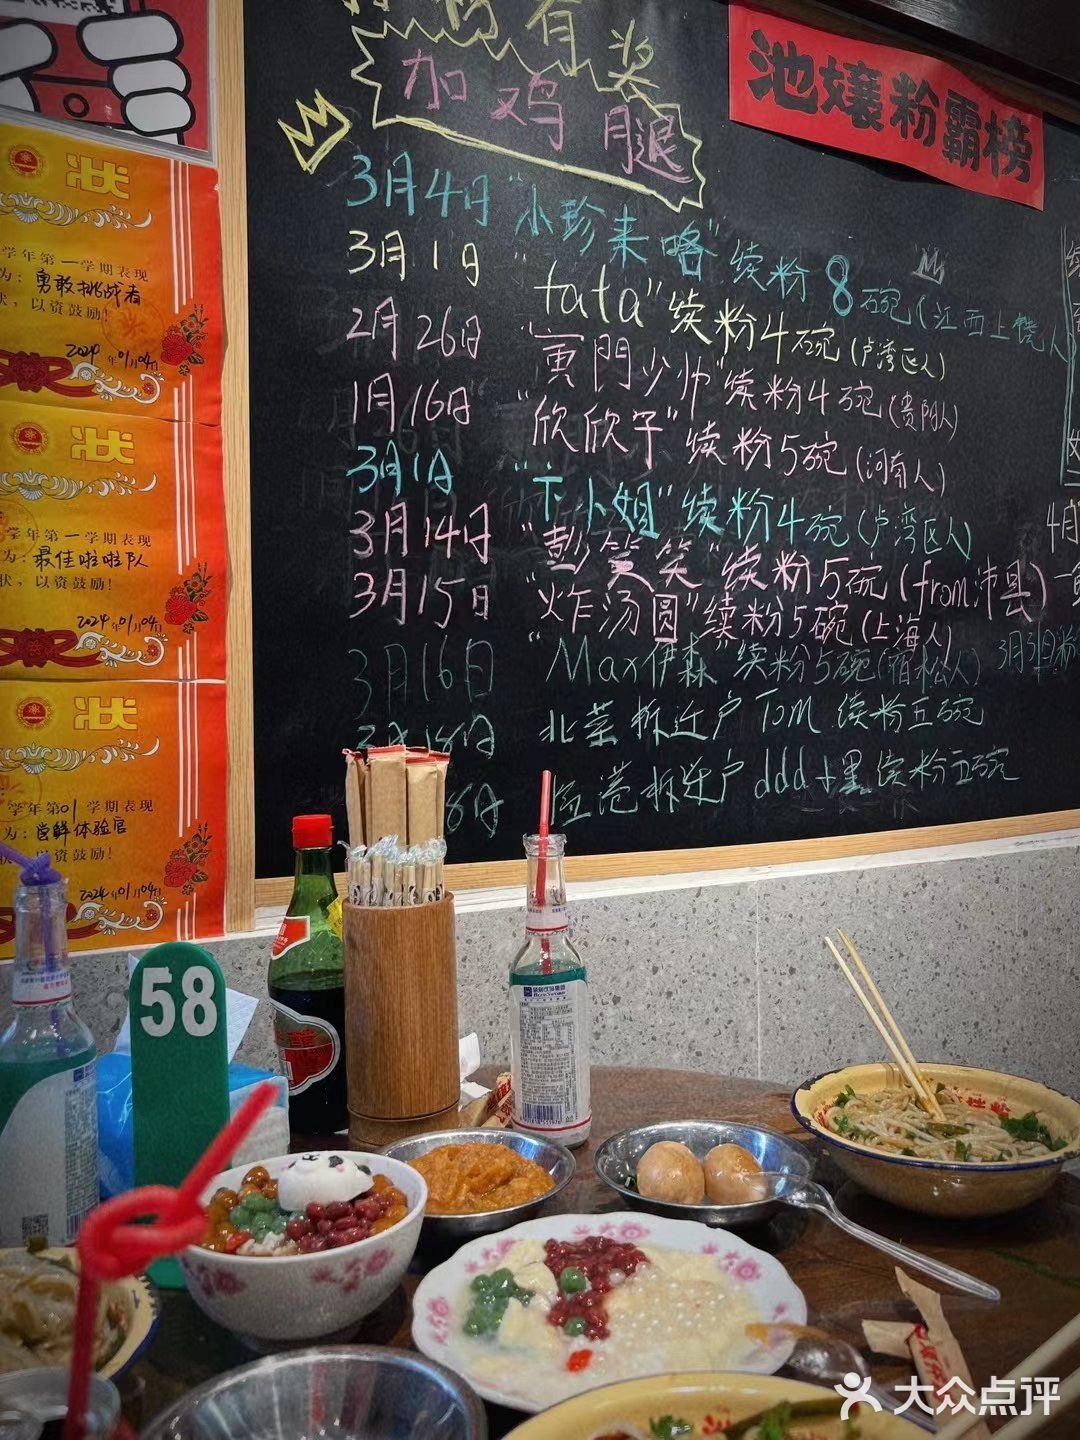 有奖
加鸡腿
池孃粉霸榜
3月4日 "小珍来咯" 续粉8碗(江西上饶人
3月1日 "tata" 续粉4碗(卢湾区人)
2月26日 "寅門少帅" 续粉4碗(贵阳人)
1月16日 "欣欣子" 续粉5碗(河南人)
3月1日 "卞小姐" 续粉4碗(卢湾区人)
3月14日 "彭笑笑" 续粉5碗(from沛县)
3月15日 "炸汤圆" 续粉5碗(上海人)
3月16日 "Max伊森" 续粉5碗(宿松人)
18日 北蔡拆迁户Tom 续粉五碗
拆迁户ddd 续粉五碗
4月
状
学年第一学期表现
为:勇敢挑战者
状,以资鼓励!
2024年01月04日
状
学年第一学期表现
为:最佳啦啦队
状,以资鼓励!
2024年01月04日
状
学年第01学期表现
为:尝鲜体验官
以资鼓励!
2024年01月04日
58
大众点评